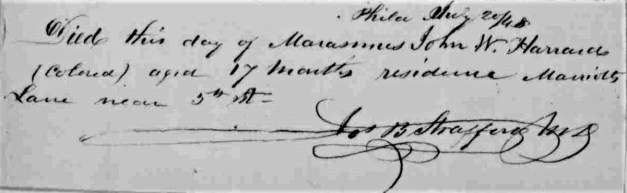 Phila Aug 20/48
Died this day of Marasmus John W. Harrard
(Colored) aged 17 months residence Marriotts
Lane near 5th St
Jos B Strafford MD